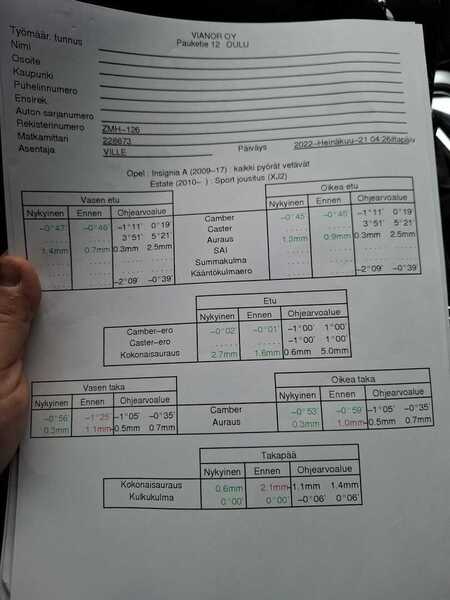 VIANOR OY
Pauketie 12 OULU
Työmäär. tunnus
Nimi
Osoite
Kaupunki
Puhelinnumero
Ensirek.
Auton sarjanumero
Rekisterinumero ZMH-126
Matkamittari 228673
Asentaja VILLE
Päiväys 2022-Heinäkuu-21 04:26iltapäiv
Opel : Insignia A (2009-17) : kaikki pyörät vetävät
Estate (2010- ) : Sport jousitus (XJ2)
Vasen etu
Nykyinen Ennen Ohjearvoalue
-0°47' -0°46' -1°11' 0°19'
..... ..... 3°51' 5°21'
1.4mm 0.7mm 0.3mm 2.5mm
..... .....
..... .....
..... ..... -2°09' -0°39'
Camber
Caster
Auraus
SAI
Summakulma
Kääntökulmaero
Oikea etu
Nykyinen Ennen Ohjearvoalue
-0°45' -0°45' -1°11' 0°19'
..... ..... 3°51' 5°21'
1.3mm 0.9mm 0.3mm 2.5mm
..... .....
..... .....
..... ..... -2°09' -0°39'
Etu
Nykyinen Ennen Ohjearvoalue
Camber-ero -0°02' -0°01' -1°00' 1°00'
Caster-ero ..... ..... -1°00' 1°00'
Kokonaisauraus 2.7mm 1.6mm 0.6mm 5.0mm
Vasen taka
Nykyinen Ennen Ohjearvoalue
-0°56' -1°25' -1°05' -0°35'
0.3mm 1.1mm -0.5mm 0.7mm
Camber
Auraus
Oikea taka
Nykyinen Ennen Ohjearvoalue
-0°53' -0°59' -1°05' -0°35'
0.3mm 1.0mm -0.5mm 0.7mm
Takapää
Nykyinen Ennen Ohjearvoalue
Kokonaisauraus 0.6mm 2.1mm -1.1mm 1.4mm
Kulkukulma 0°00' 0°00' -0°06' 0°06'